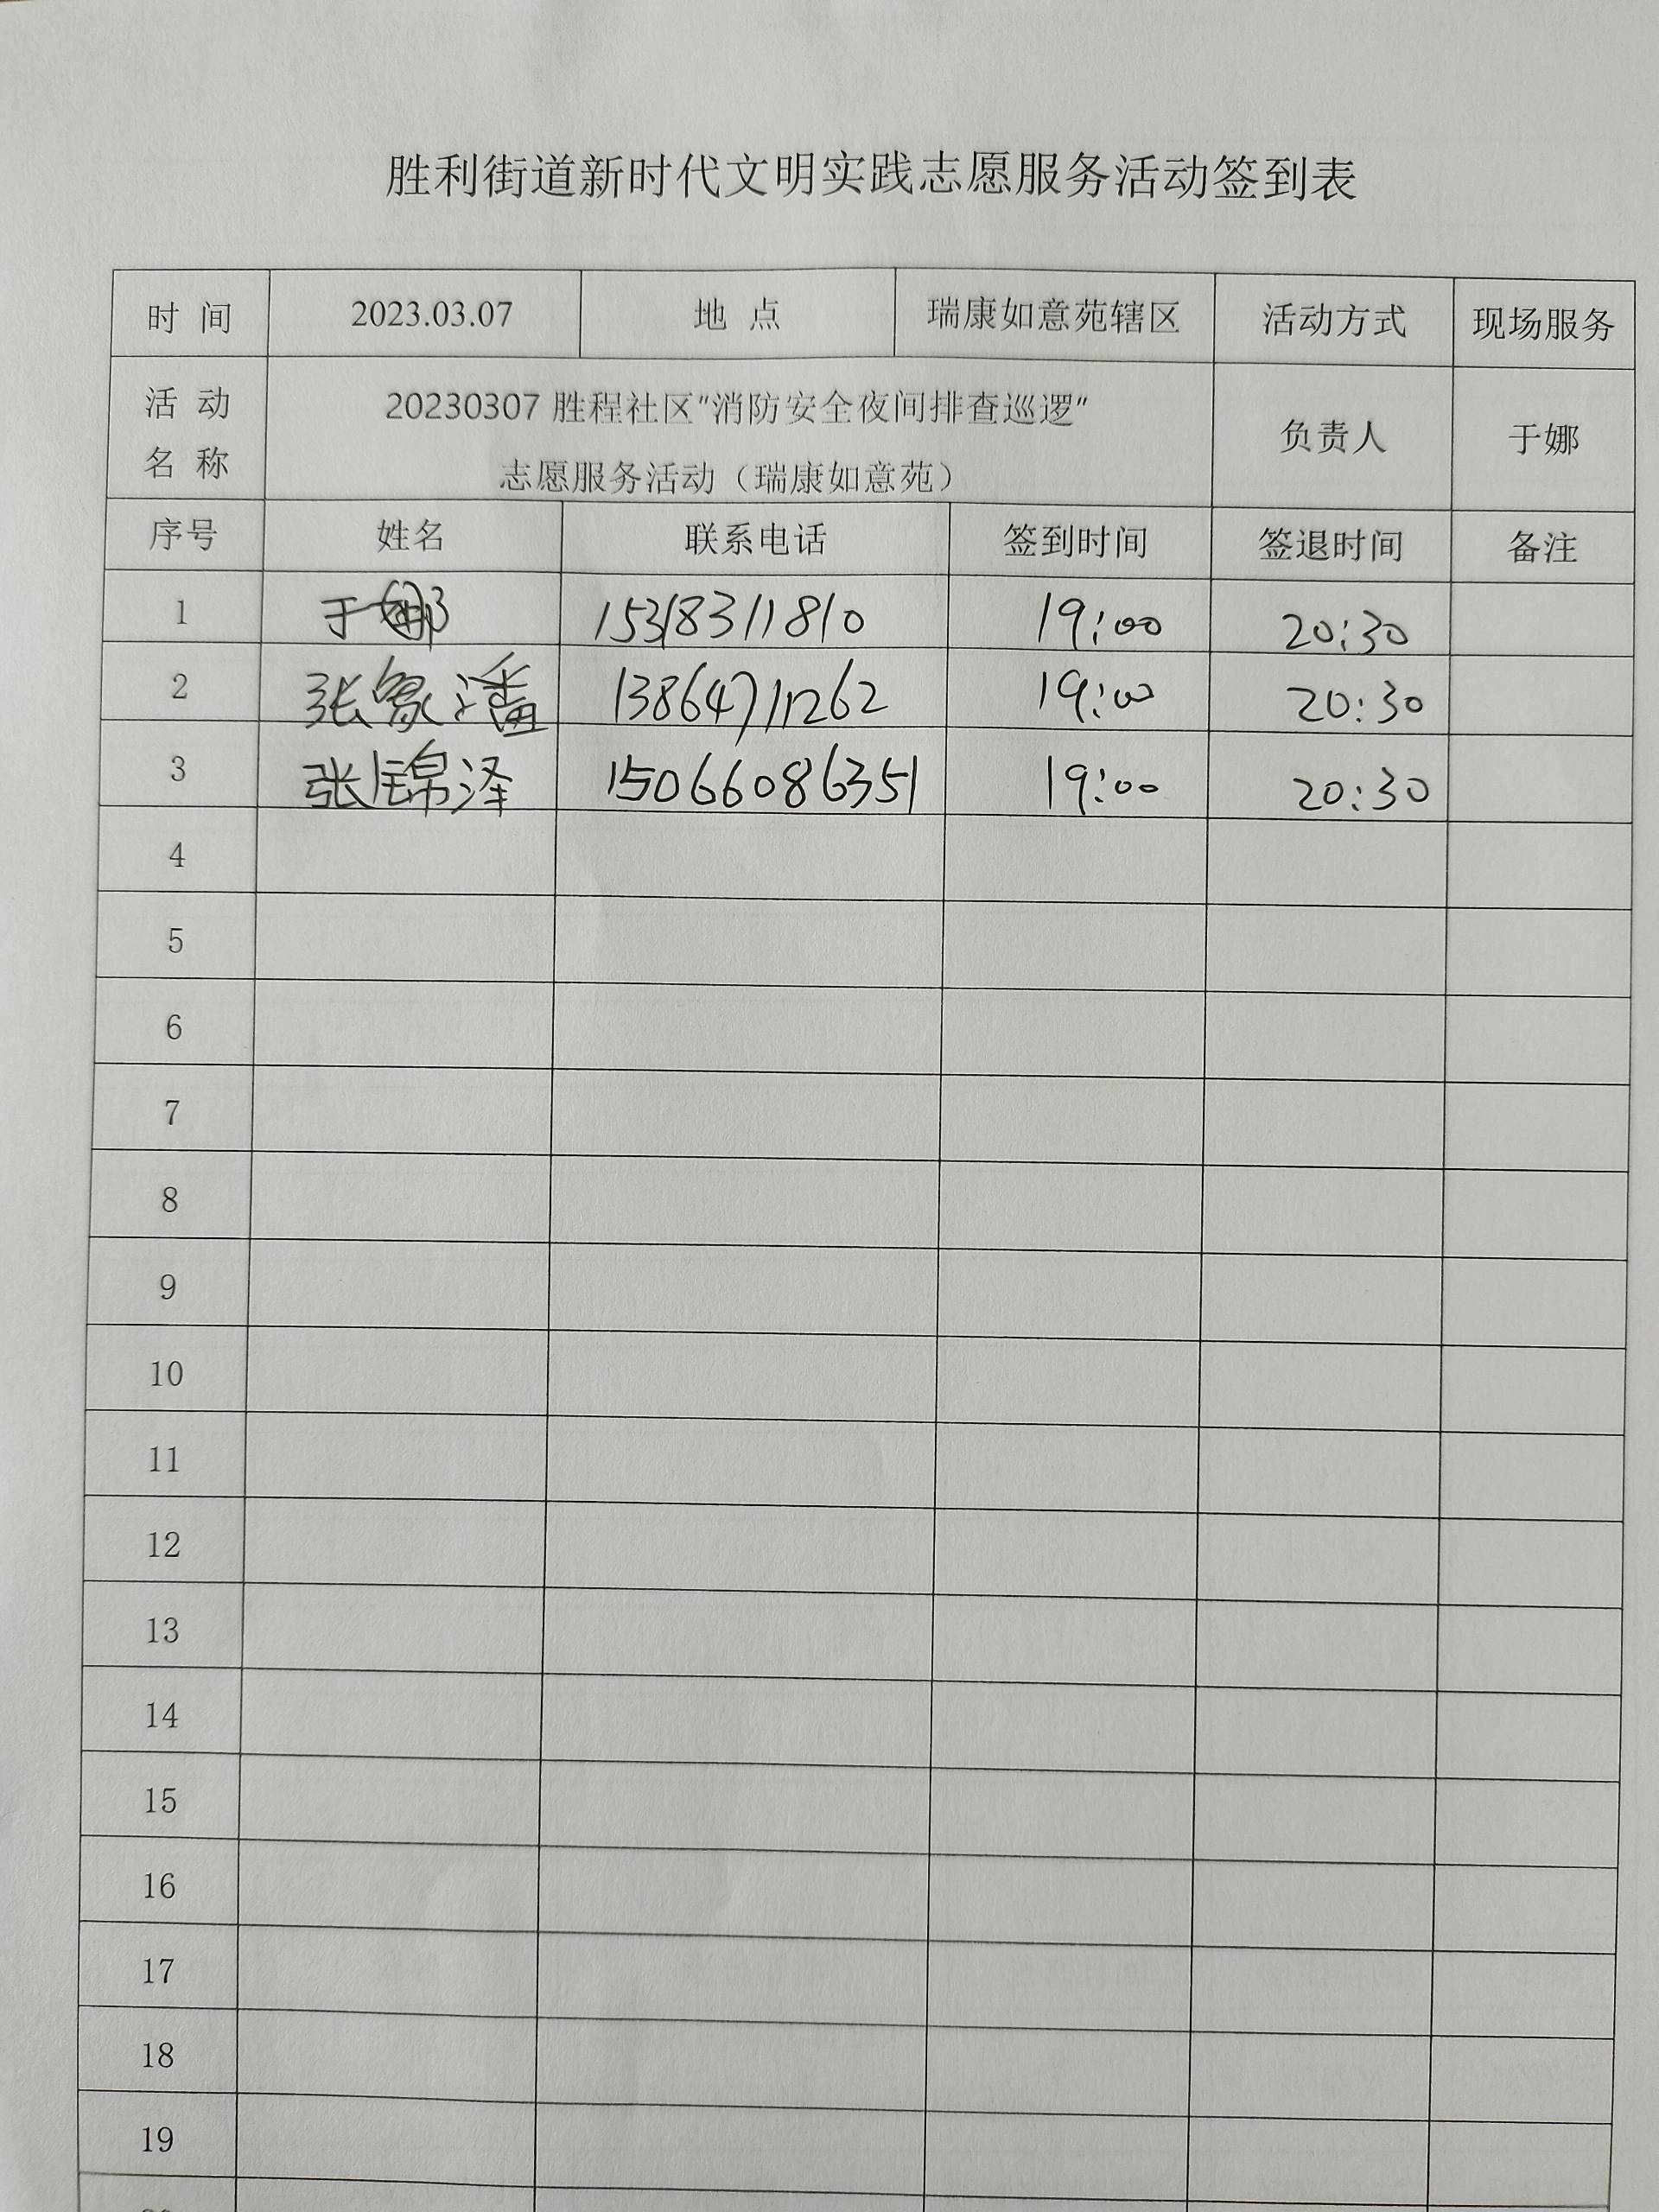 胜利街道新时代文明实践志愿服务活动签到表
时 间 2023.03.07 地 点 瑞康如意苑辖区 活动方式 现场服务
活 动 名 称 20230307 胜程社区"消防安全夜间排查巡逻" 志愿服务活动（瑞康如意苑） 负责人 于娜
序号 姓名 联系电话 签到时间 签退时间 备注
1 于娜 15318311810 19:00 20:30
2 张 潘 13864711262 19:00 20:30
3 张锦泽 15066086351 19:00 20:30
4
5
6
7
8
9
10
11
12
13
14
15
16
17
18
19